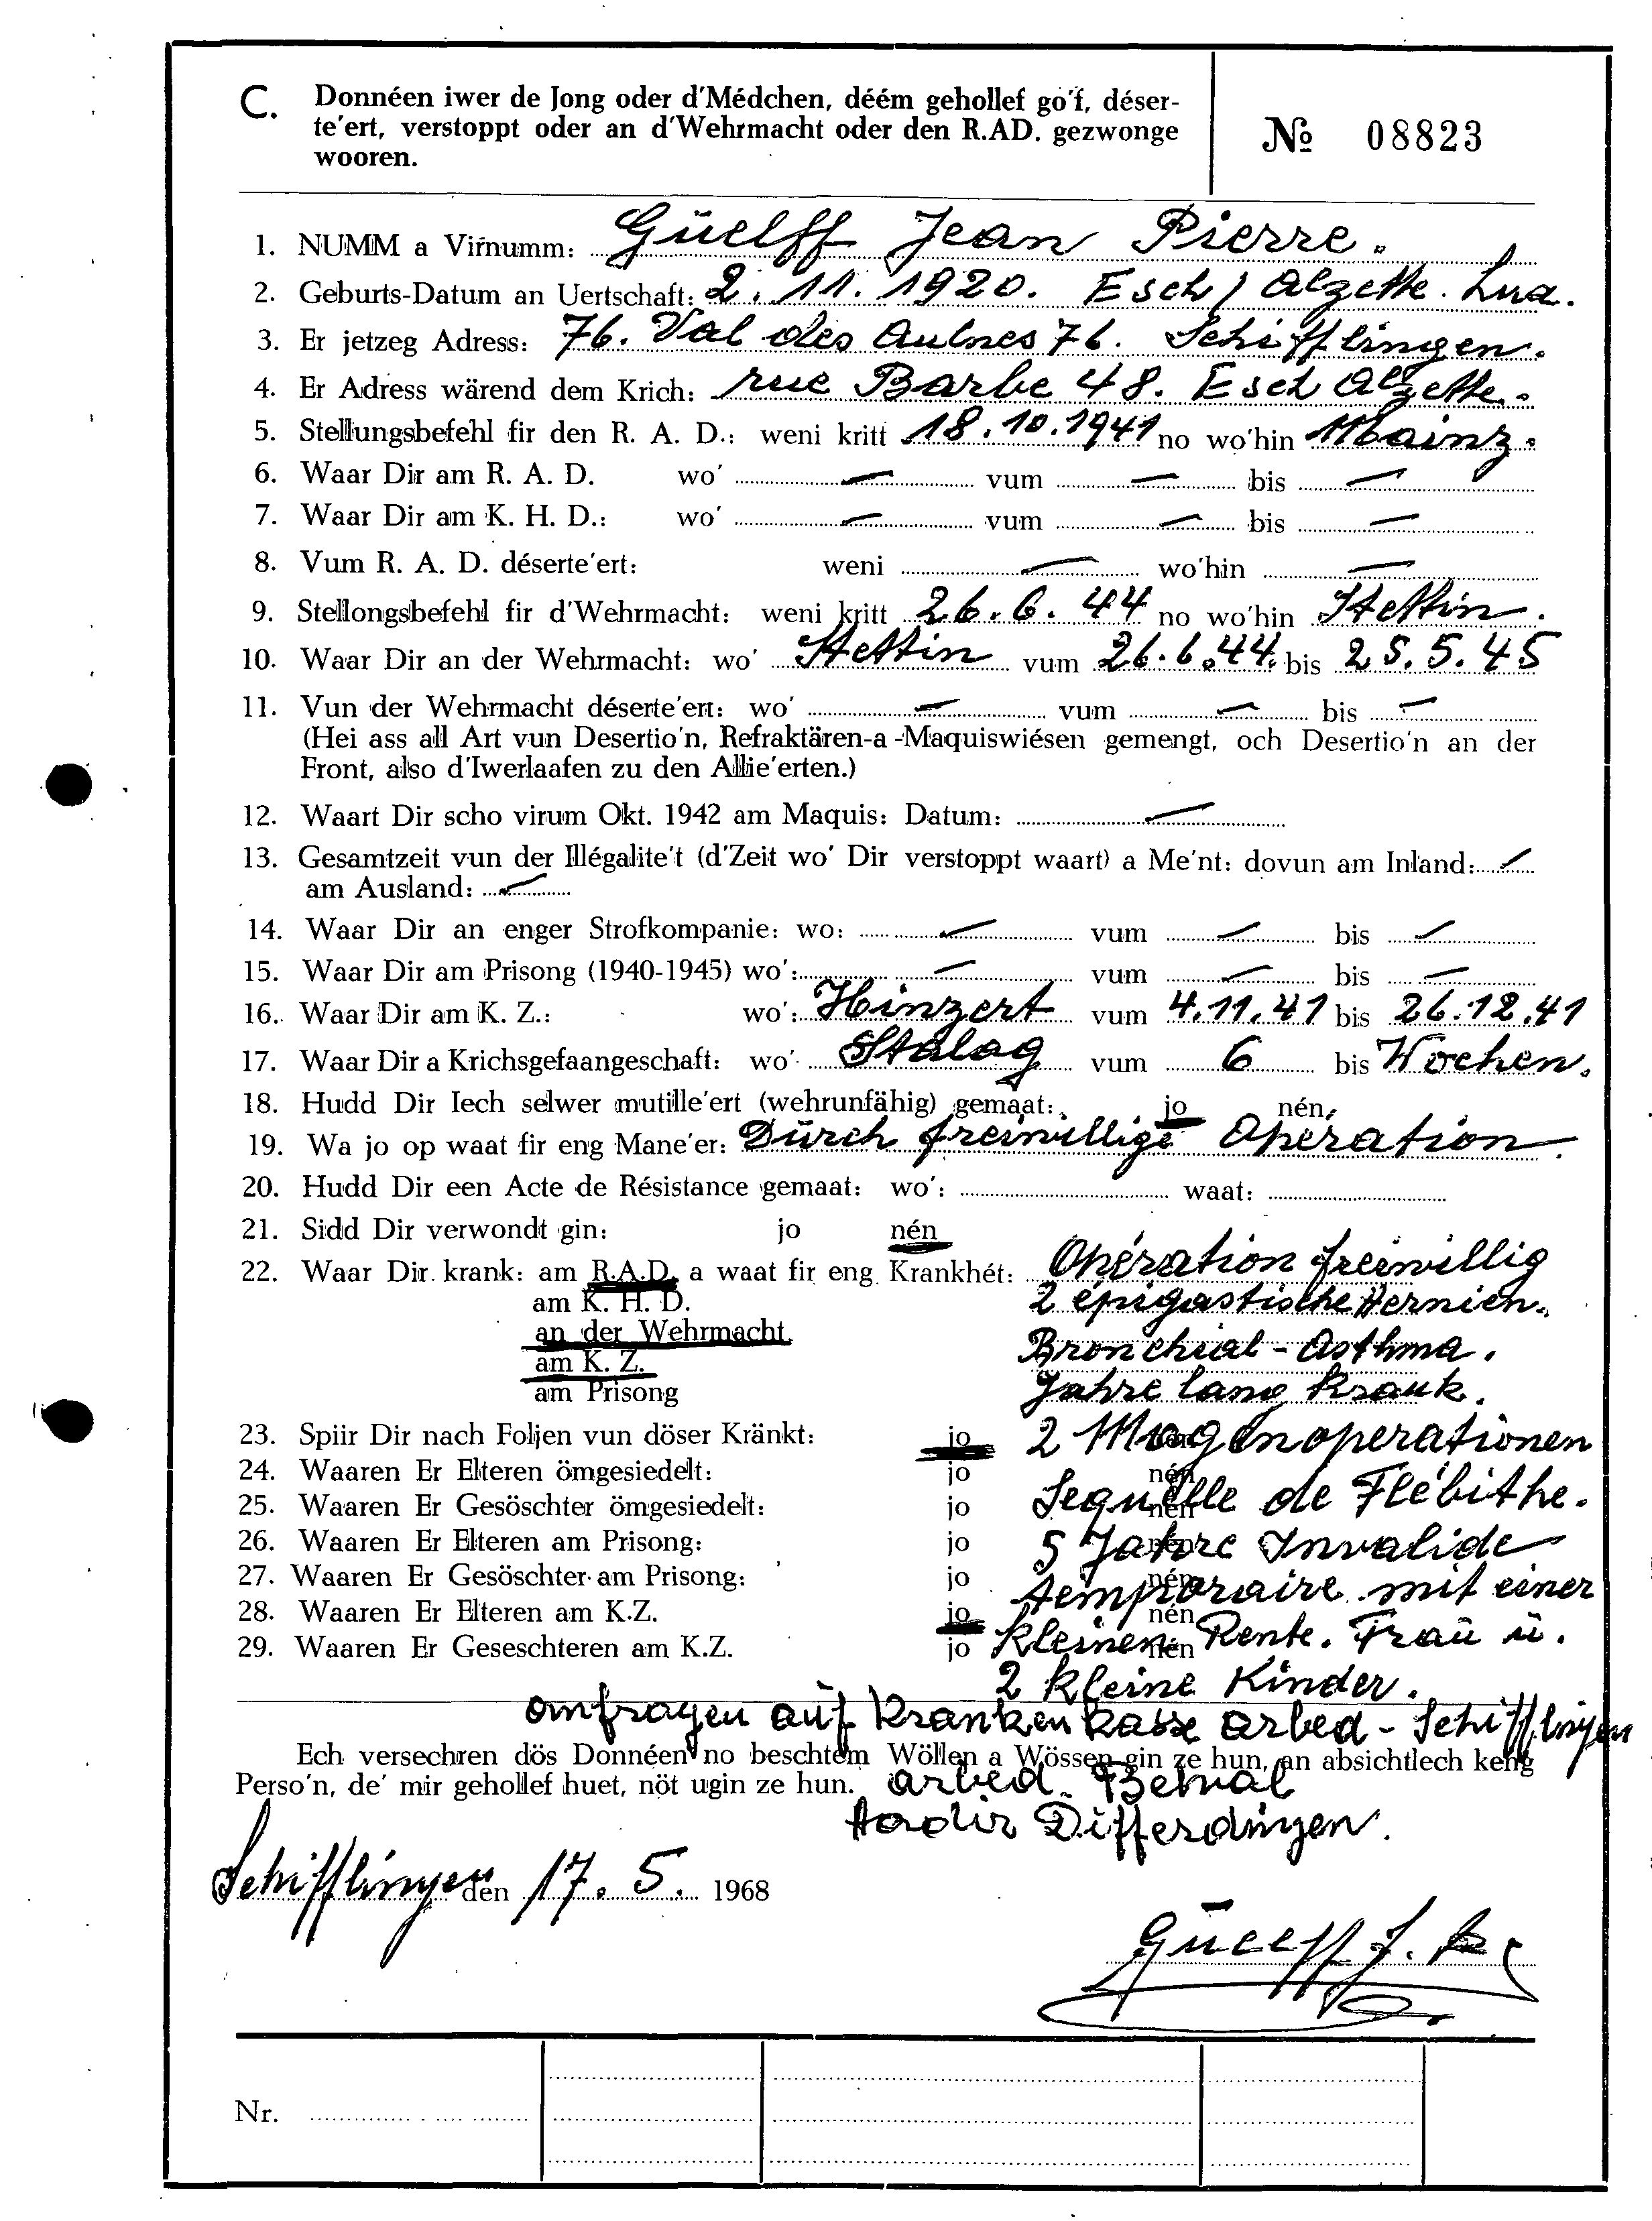 C. Donnéen iwer de Jong oder d'Médchen, déém gehollef go'f, déser-
te'ert, verstoppt oder an d'Wehrmacht oder den R.AD. gezwonge
wooren.
№ 08823
1. NUMM a Virnumm: Güelff Jean Pierre.
2. Geburts-Datum an Uertschaft: 2. 11. 1920. Esch / Alzette. Lux.
3. Er jetzeg Adress: 76. Val des Aulnes 76. Schifflingen.
4. Er Adress wärend dem Krich: rue Barbe 48. Esch Alzette.
5. Stellungsbefehl fir den R. A. D.: weni kritt 18.10.1941 no wo'hin Mainz.
6. Waar Dir am R. A. D. wo' — vum — bis —
7. Waar Dir am K. H. D.: wo' — vum — bis —
8. Vum R. A. D. déserte'ert: weni — wo'hin —
9. Stellongsbefehl fir d'Wehrmacht: weni kritt 26.6.44 no wo'hin Stettin.
10. Waar Dir an der Wehrmacht: wo' Stettin vum 26.6.44. bis 25.5.45
11. Vun der Wehrmacht déserte'ert: wo' — vum — bis —
(Hei ass all Art vun Desertio'n, Refraktären-a-Maquiswiésen gemengt, och Desertio'n an der
Front, also d'Iwerlaafen zu den Allie'erten.)
12. Waart Dir scho virum Okt. 1942 am Maquis: Datum: —
13. Gesamtzeit vun der Illégalite't (d'Zeit wo' Dir verstoppt waart) a Me'nt: dovun am Inland: —
am Ausland: —
14. Waar Dir an enger Strofkompanie: wo: — vum — bis —
15. Waar Dir am Prisong (1940-1945) wo': — vum — bis —
16. Waar Dir am K. Z.: wo': Hinzert vum 4.11.41 bis 26.12.41
17. Waar Dir a Krichsgefaangeschaft: wo' Stalag vum 6 bis Wochen.
18. Hudd Dir Iech selwer mutille'ert (wehrunfähig) gemaat: jo nén
19. Wa jo op waat fir eng Mane'er: Dürch freiwillige Operation
20. Hudd Dir een Acte de Résistance gemaat: wo': waat:
21. Sidd Dir verwondt gin: jo nén
22. Waar Dir krank: am R.A.D. a waat fir eng Krankhét: Opération freiwillig
am K. H. D. 2 épigastische Hernien.
an der Wehrmacht
am K. Z. Bronchial-Asthma.
am Prisong Jahre lang krank.
23. Spiir Dir nach Foljen vun döser Kränkt: jo 2 Magenoperationen
24. Waaren Er Elteren ömgesiedelt: jo nén
25. Waaren Er Gesöschter ömgesiedelt: jo nén Sequelle de Flébithe.
26. Waaren Er Elteren am Prisong: jo nén 5 Jahre Invalide
27. Waaren Er Gesöschter am Prisong: jo nén temporaire mit einer
28. Waaren Er Elteren am K.Z. jo nén
29. Waaren Er Geseschteren am K.Z. jo nén kleinen Rente. Fraü ü.
2 kleine Kinder.
anfragen auf Krankenkasse Arbed-Schifflingen
Ech versechren dös Donnéen no beschtem Wöllen a Wössen gin ze hun, an absichtlech keng
Perso'n, de' mir gehollef huet, nöt ugin ze hun. Arbed. Belval
Hadir Differdingen.
Schifflingen den 17. 5. 1968
Güelff J.
Nr.